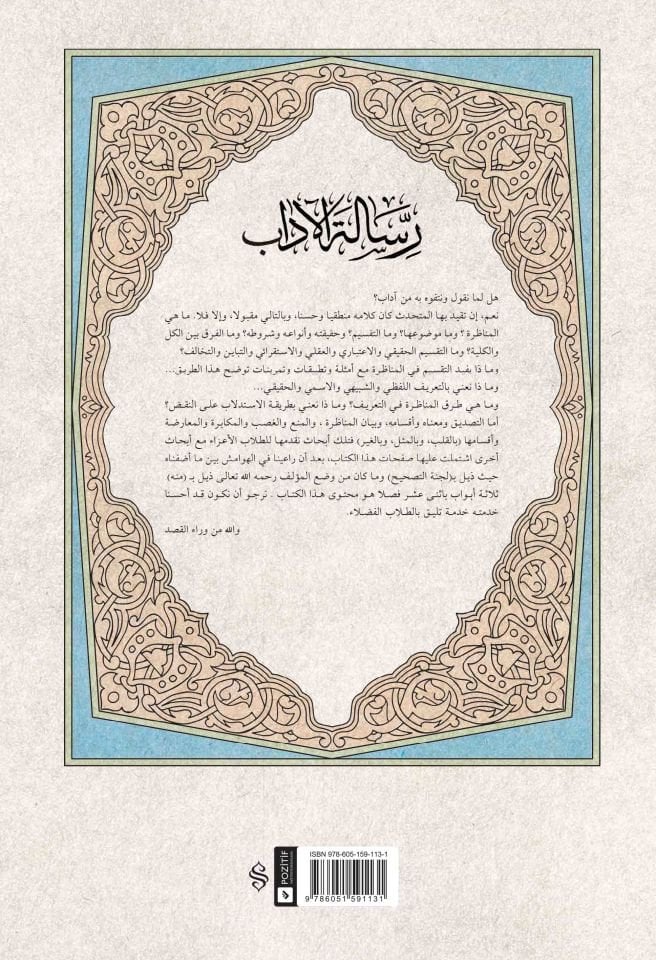 رِسَالَة الآدَاب
هل لما نقول ونتفوه به من آداب؟
نعم، إن تقيد بها المتحدث كان كلامه منطقيا وحسنا، وبالتالي مقبولا، وإلا فلا. ما هي
المناظرة ؟ وما موضوعها؟ وما التقسيم؟ وحقيقته وأنواعه وشروطه؟ وما الفرق بين الكل
والكلية؟ وما التقسيم الحقيقي والاعتباري والعقلي والاستقرائي والتباين والتخالف؟
وما ذا يفيد التقسم في المناظرة مع أمثلة وتطبيقات وتمرينات توضح هذا الطريق...
وما ذا نعني بالتعريف اللفظي والشبيهي والاسمي والحقيقي...
وما هي طرق المناظرة في التعريف؟ وما ذا نعني بطريقة الاستدلاب على النقض؟
أما التصديق ومعناه وأقسامه، وبيان المناظرة ، والمنع والغصب والمكابرة والمعارضة
وأقسامها (بالقلب، وبالمثل، وبالغير) فتلك أبحاث نقدمها للطلاب الأعزاء مع أبحاث
أخرى اشتملت عليها صفحات هذا الكتاب، بعد أن راعينا في الهوامش بين ما أضفناه
حيث ذيل بـ(لجنة التصحيح) وما كان من وضع المؤلف رحمه الله تعالى ذيل بـ (منه)
ثلاثة أبواب باثنى عشر فصلا هو محتوى هذا الكتاب . نرجو أن نكون قد أحسنا
خدمته خدمة تليق بالطلاب الفضلاء.
والله من وراء القصد
ISBN 978-605-159-113-1
POZİTİF
9 786051 591131